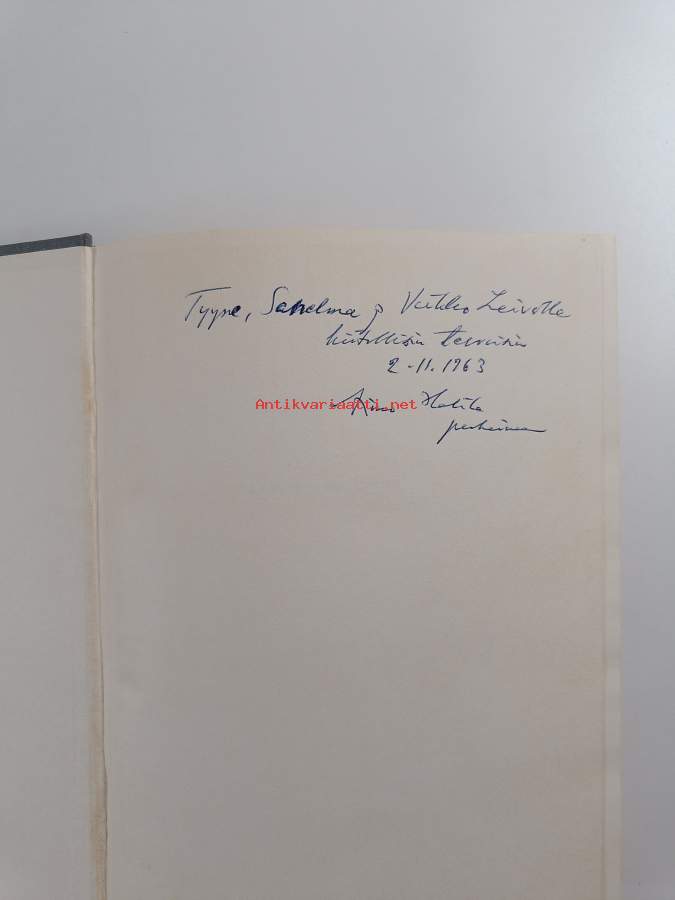 Tyyne, Sanelma ja Veikko Leivolle
kiitollisin terveisin
2-11.1963
Antikvariaatti.net
perheineen